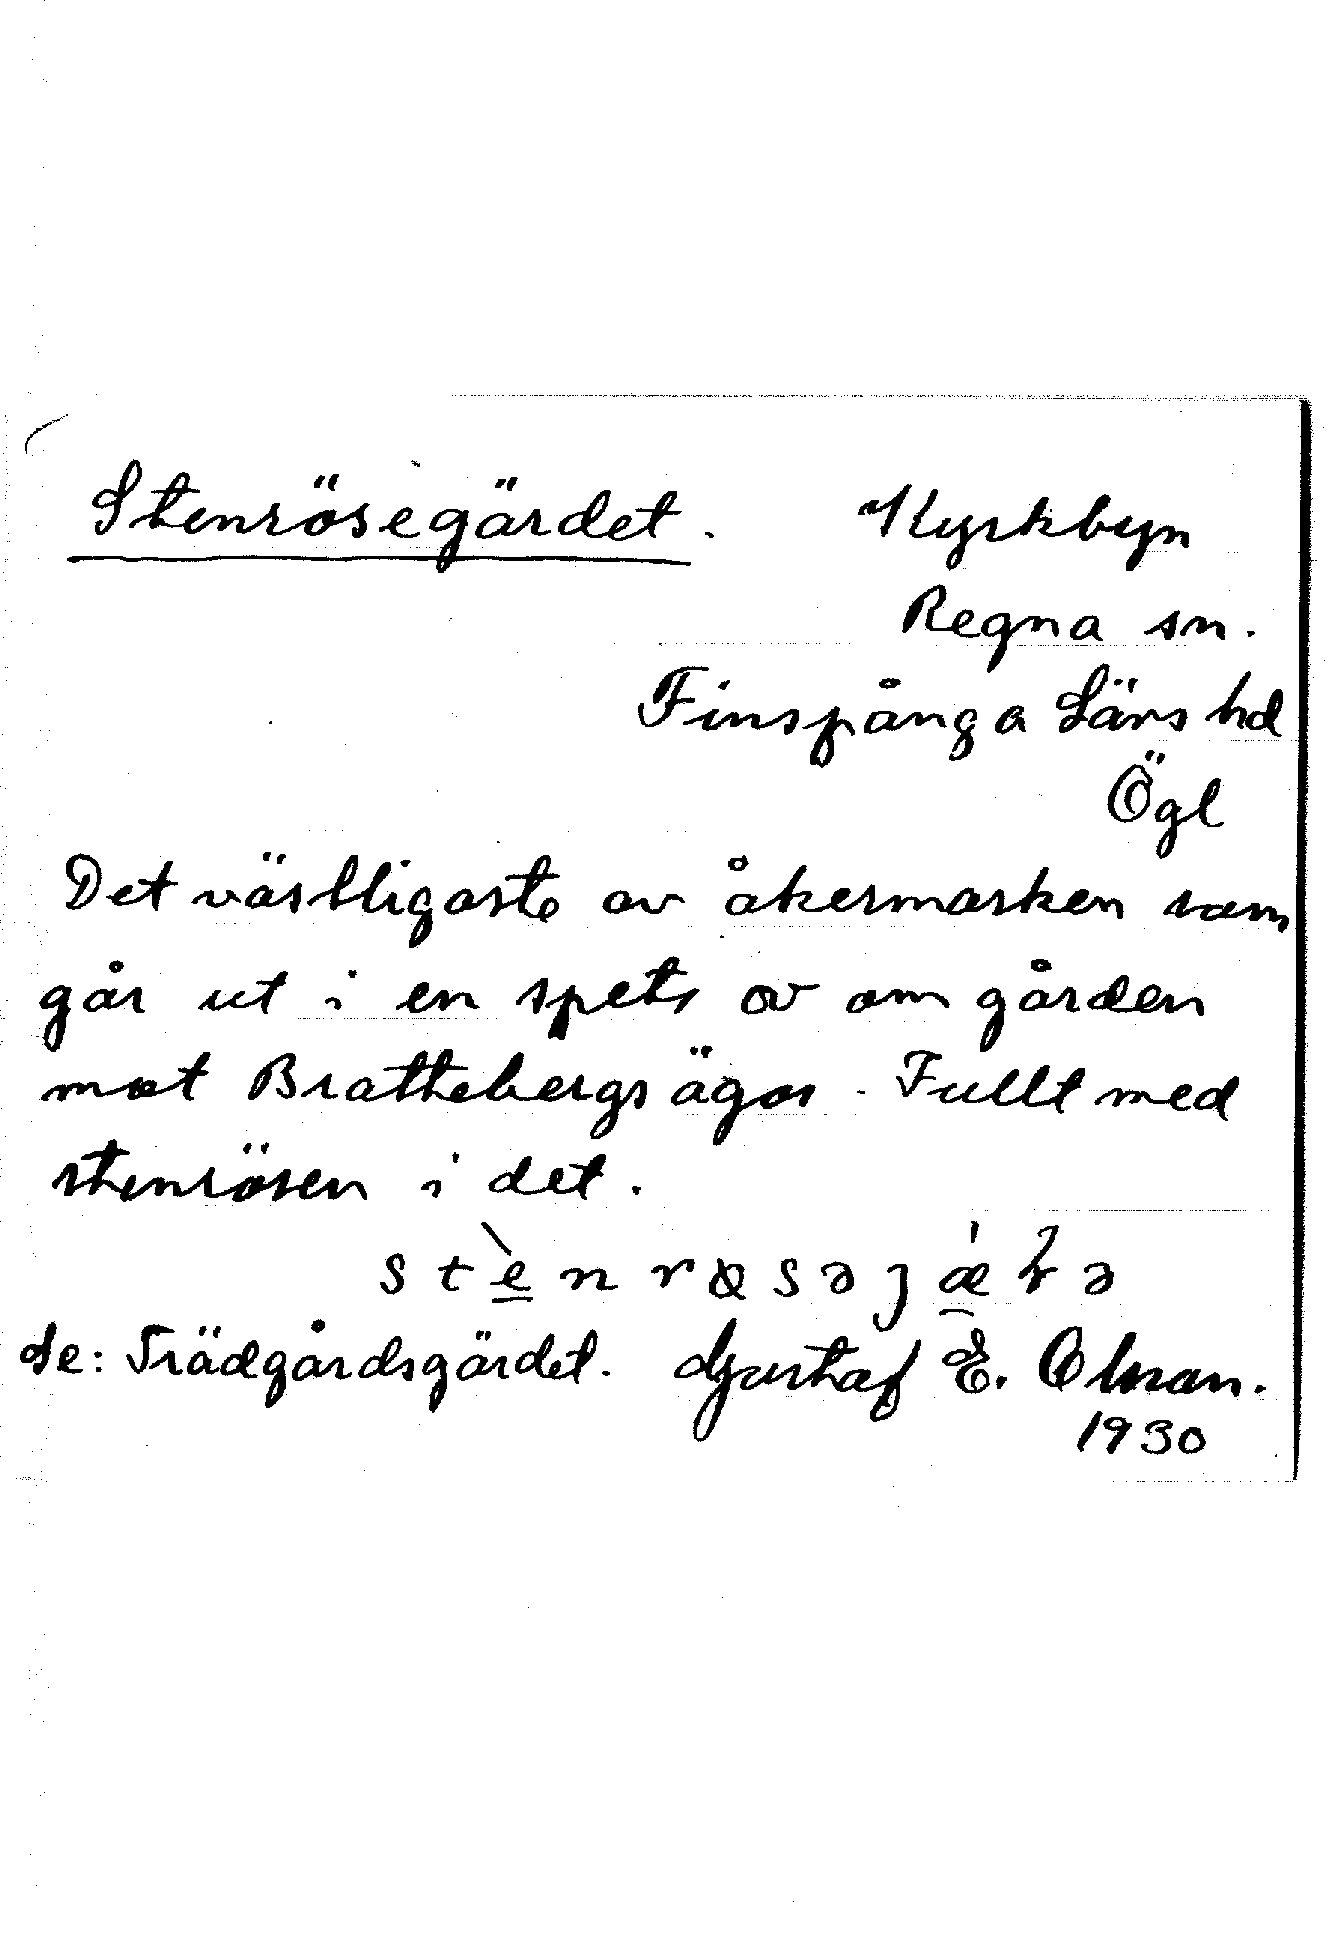 Stenrösegärdet. Kyrkbyn
Regna sn.
Finspånga Läns hd
Ögl
Det västligaste av åkermarken som
går ut i en spets av om gården
mot Brattebergs ägor. Fullt med
stenrösen i det.
Se: Trädgårdsgärdet. Gustaf E.
1930